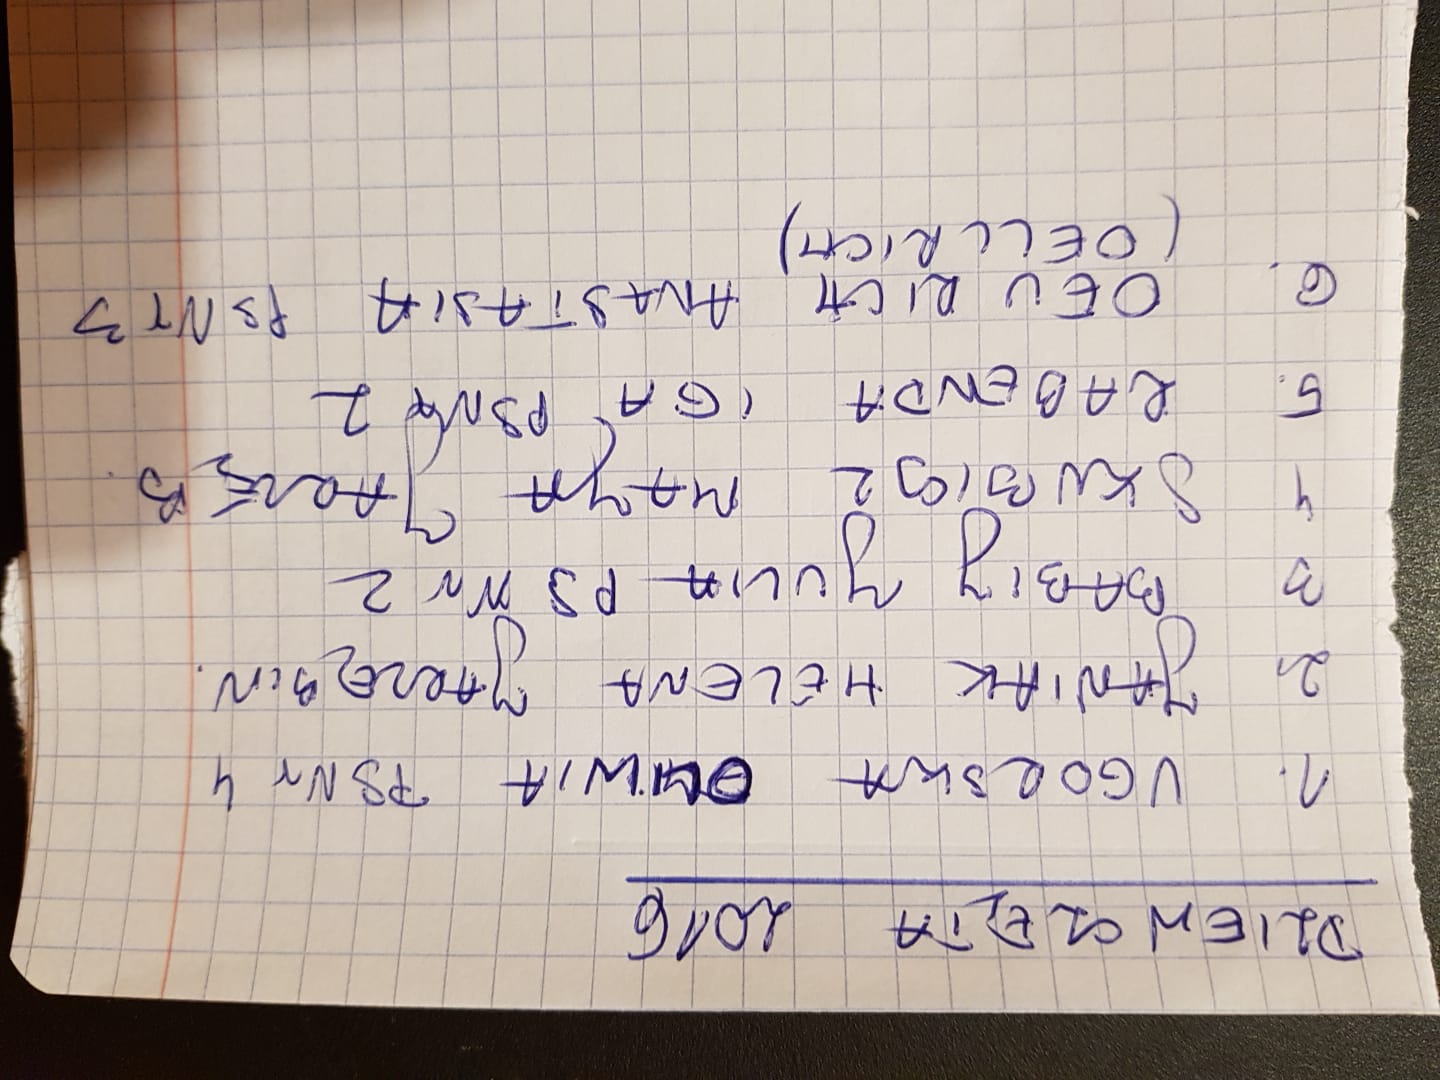 DZIEWCZĘTA 2016
1. UGORSKA OLIWIA PSNr 4
2. JANIAK HELENA JARZĘBIN.
3 BABIJ JULIA PS Nr 2
4 SKUBISZ MAJA JARZĘB.
5. RABENDA IGA PSNr 2
6. OEURICH ANASTASIA PSNr 3
(OELLRICH)